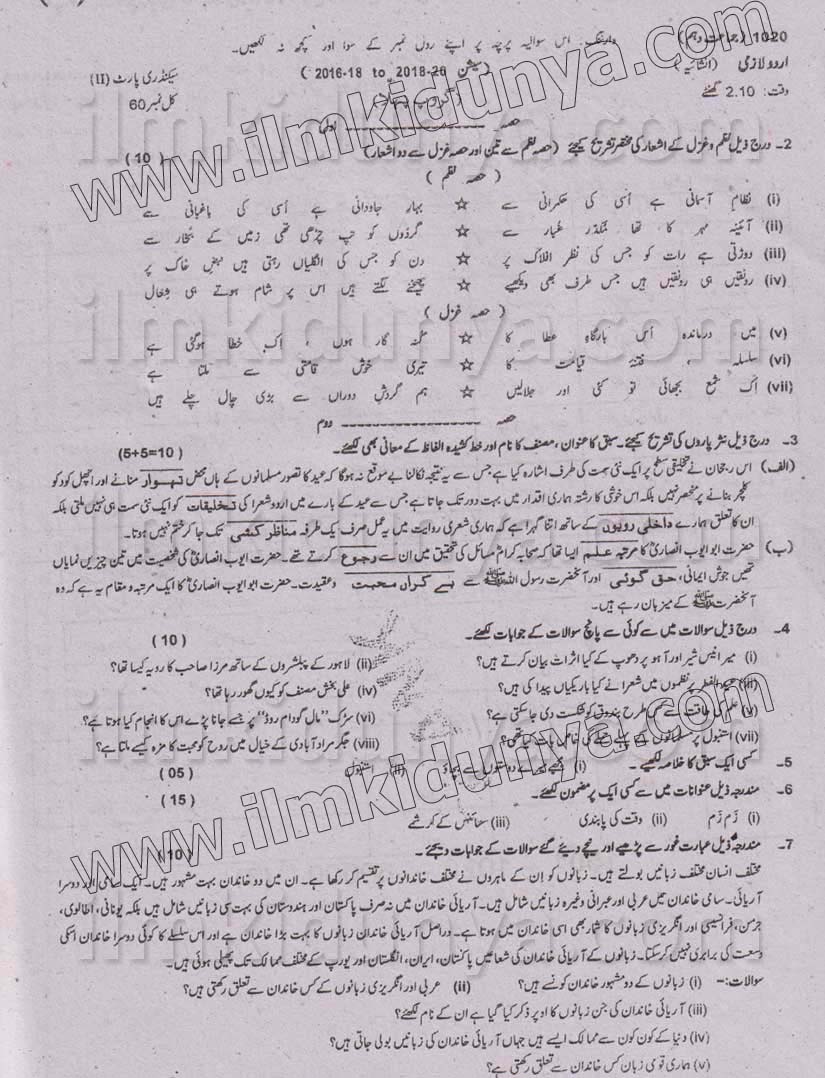 1020 (جماعت دہم) وارننگ: اس سوالیہ پرچہ پر اپنے رول نمبر کے سوا اور کچھ نہ لکھیں۔
اردو لازمی (انشائیہ) (سیشن 2016-18 to 2018-20) سیکنڈری پارٹ (II)
وقت: 2.10 گھنٹے (گروپ پہلا) کل نمبر 60
حصہ اولی
2۔ درج ذیل نظم و غزل کے اشعار کی مختصر تشریح کیجئے (حصہ نظم سے تین اور حصہ غزل سے دو اشعار) (10)
(حصہ نظم)
(i) نظامِ آسمانی ہے اُسی کی حکمرانی سے ☆ بہارِ جاودانی ہے اُسی کی باغبانی سے
(ii) آئینہ مہر کا تھا مُکدّر غُبار سے ☆ گردُوں کو تپ چڑھی تھی زمیں کے بُخار سے
(iii) دوڑتی ہے رات کو جس کی نظر افلاک پر ☆ دن کو جس کی انگلیاں رہتی ہیں نبضِ خاک پر
(iv) رونقیں ہی رونقیں ہیں جس طرف بھی دیکھیے ☆ چھپنے لگتے ہیں اس پر شام ہوتے ہی شغال
(حصہ غزل)
(v) میں درماندہ اُس بارگاہِ عطا کا ☆ گنہ گار ہوں، اک خطا ہوگئی ہے
(vi) سلسلہ، فتنۂ قیامت کا ☆ تیری خوش قامتی سے ملتا ہے
(vii) اک شمع بجھائی تو کئی اور جلالیں ☆ ہم گردشِ دوراں سے بڑی چال چلے ہیں
حصہ دوم
3۔ درج ذیل نثر پاروں کی تشریح کیجئے۔ سبق کا عنوان، مصنف کا نام اور خط کشیدہ الفاظ کے معانی بھی لکھئے۔ (5+5=10)
(الف) اس رجحان نے تخلیقی سطح پر ایک نئی سمت کی طرف اشارہ کیا ہے جس سے یہ نتیجہ نکالنا بے موقع نہ ہوگا کہ عید کا تصور مسلمانوں کے ہاں محض تہوار منانے اور اُچھل کود کو
کلچر بنانے پر منحصر نہیں بلکہ اس خوشی کا رشتہ ہماری اقدار میں بہت دور تک جاتا ہے جس سے عید کے بارے میں اردو شعرا کی تخلیقات کو ایک نئی سمت ہی نہیں ملتی بلکہ
ان کا تعلق ہمارے داخلی رویوں کے ساتھ اتنا گہرا ہے کہ ہماری شعری روایت میں یہ عمل صرف یک طرفہ مناظر کشی تک جا کر ختم نہیں ہوتا۔
(ب) حضرت ابو ایوب انصاریؓ کا مرتبہ علم ایسا تھا کہ صحابہ کرامؓ مسائل کی تحقیق میں ان سے رجوع کرتے تھے۔ حضرت ابو ایوب انصاریؓ کی شخصیت میں تین چیزیں نمایاں
تھیں جوش ایمانی، حق گوئی اور آنحضرت رسول اللہ ﷺ سے بے کراں محبت و عقیدت۔ حضرت ابو ایوب انصاریؓ کا ایک مرتبہ و مقام یہ ہے کہ وہ
آنحضرت ﷺ کے میزبان رہے ہیں۔
4۔ درج ذیل سوالات میں سے کوئی سے پانچ سوالات کے جوابات لکھئے۔ (10)
(i) میر انیس شیر اور آہو پر دھوپ کے کیا اثرات بیان کرتے ہیں؟ (ii) لاہور کے پبلشروں کے ساتھ مرزا صاحب کا رویہ کیسا تھا؟
(iii) عید الفطر پر نظموں میں شعرا نے کیا باریکیاں پیدا کی ہیں؟ (iv) علی بخش مصنف کو کیوں گھور رہا تھا؟
(v) علم کی طاقت سے کس طرح بندوق کو شکست دی جاسکتی ہے؟ (vi) سڑک "مال گودام روڈ" پر جسے جانا پڑے اس کا انجام کیا ہوتا ہے؟
(vii) استنبول پر مسلمانوں کے پہلے حملے کی خاص بات کیا تھی؟ (viii) جگر مراد آبادی کے خیال میں روح کو محبت کا مزہ کیسے ملتا ہے؟
5۔ کسی ایک سبق کا خلاصہ لکھیے۔ (i) مجھے میرے دوستوں سے بچاؤ (ii) استنبول (05)
6۔ مندرجہ ذیل عنوانات میں سے کسی ایک پر مضمون لکھئے۔ (15)
(i) زَم زَم (ii) وقت کی پابندی (iii) سائنس کے کرشمے
7۔ مندرجہ ذیل عبارت غور سے پڑھیے اور نیچے دیئے گئے سوالات کے جوابات دیجئے۔ (10)
مختلف انسان مختلف زبانیں بولتے ہیں۔ زبانوں کو اِن کے ماہروں نے مختلف خاندانوں پر تقسیم کر رکھا ہے۔ ان میں دو خاندان بہت مشہور ہیں۔ ایک سامی اور دوسرا
آریائی۔ سامی خاندان میں عربی اور عبرانی وغیرہ زبانیں شامل ہیں۔ آریائی خاندان میں نہ صرف پاکستان اور ہندوستان کی بہت سی زبانیں شامل ہیں بلکہ یونانی، اطالوی،
جرمن، فرانسیسی اور انگریزی زبانوں کا شمار بھی اسی خاندان میں ہوتا ہے۔ دراصل آریائی خاندان زبانوں کا بہت بڑا خاندان ہے اور اس سلسلے کا کوئی دوسرا خاندان اسکی
وسعت کی برابری نہیں کرسکتا۔ زبانوں کے آریائی خاندان کی شعاعیں پاکستان، ایران، انگلستان اور یورپ کے مختلف ممالک تک پھیلی ہوئی ہیں۔
سوالات:۔ (i) زبانوں کے دو مشہور خاندان کونسے ہیں؟ (ii) عربی اور انگریزی زبانوں کے کس خاندان سے تعلق رکھتی ہیں؟
(iii) آریائی خاندان کی جن زبانوں کا اوپر ذکر کیا گیا ہے ان کے نام لکھئے؟
(iv) دنیا کے کون کون سے ممالک ایسے ہیں جہاں آریائی خاندان کی زبانیں بولی جاتی ہیں؟
(v) ہماری قومی زبان کس خاندان سے تعلق رکھتی ہے؟
www.ilmkidunya.com
www.ilmkidunya.com
ilmkidunya.com
ilmkidunya.com
ilmkidunya.com
ilmkidunya.com
ilmkidunya.com